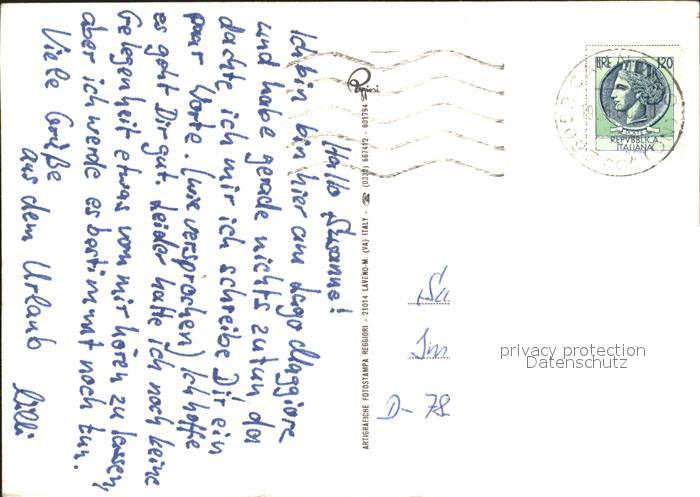 Hallo Susanne!
Ich bin bin hier am Lago Maggiore
und habe gerade nichts zu tun, da
dachte ich mir ich schreibe Dir ein
paar Worte. (wie versprochen) Ich hoffe
es geht Dir gut. Leider hatte ich noch keine
Gelegenheit etwas von mir hören zu lassen,
aber ich werde es bestimmt noch tun.
Viele Grüße
aus dem Urlaub
Lilli
Reggiori
ARTIGRAFICHE FOTOSTAMPA REGGIORI - 21014 LAVENO-M. (VA) ITALY - ☎ (0332) 667412 - 601794
LIRE 120
REPVBBLICA
ITALIANA
Su
Im
D- 78
privacy protection
Datenschutz